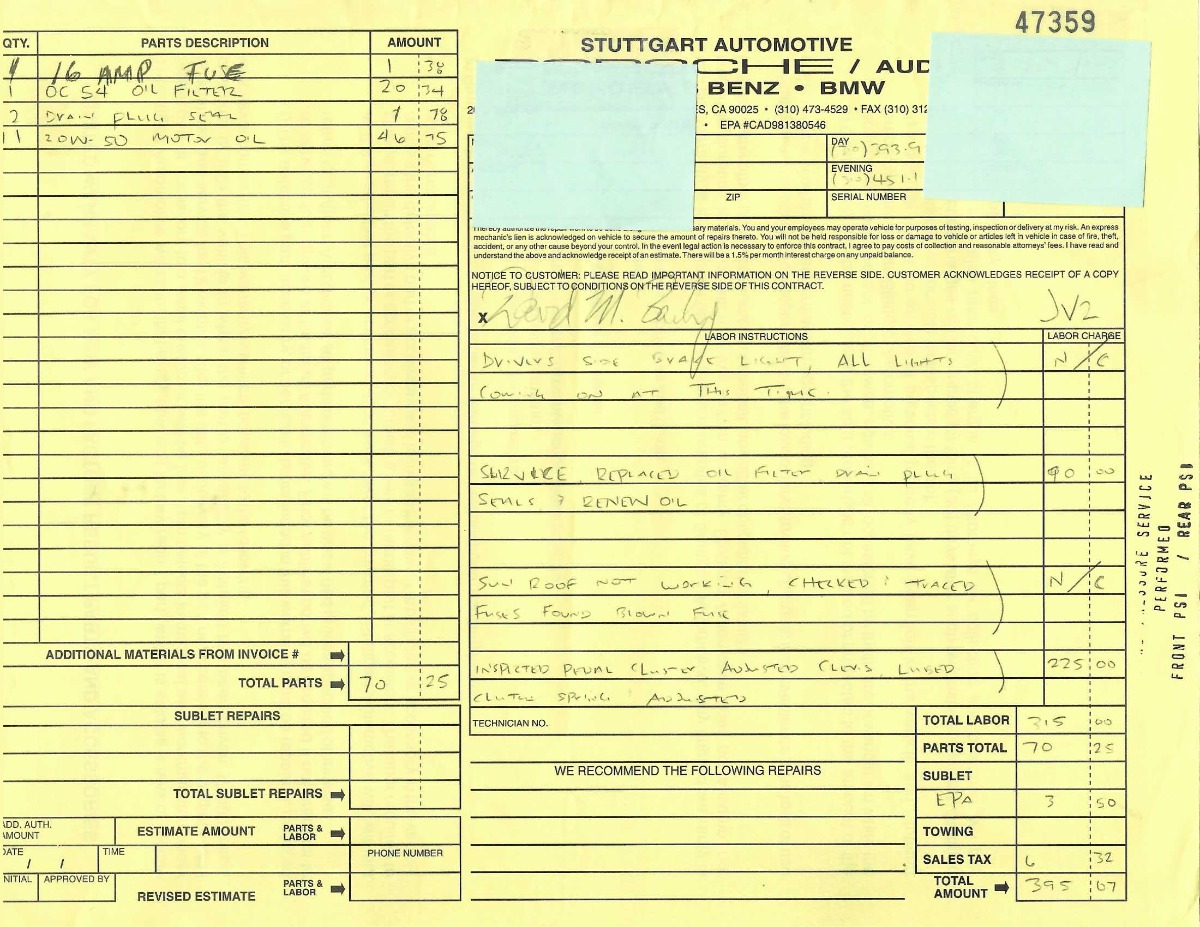 47359
QTY. PARTS DESCRIPTION AMOUNT
1 16 AMP FUSE 1 38
1 OC 54 OIL FILTER 20 34
2 DRAIN PLUG SEAL 1 78
11 20W-50 MOTOR OIL 46 75
ADDITIONAL MATERIALS FROM INVOICE #
TOTAL PARTS 70 25
SUBLET REPAIRS
TOTAL SUBLET REPAIRS
ADD. AUTH. AMOUNT
ESTIMATE AMOUNT PARTS & LABOR
DATE / / TIME
PHONE NUMBER
INITIAL APPROVED BY
REVISED ESTIMATE PARTS & LABOR
STUTTGART AUTOMOTIVE
PORSCHE / AUD
BENZ • BMW
ES, CA 90025 • (310) 473-4529 • FAX (310) 312
• EPA #CAD981380546
DAY
EVENING
ZIP SERIAL NUMBER
ary materials. You and your employees may operate vehicle for purposes of testing, inspection or delivery at my risk. An express
mechanic's lien is acknowledged on vehicle to secure the amount of repairs thereto. You will not be held responsible for loss or damage to vehicle or articles left in vehicle in case of fire, theft,
accident, or any other cause beyond your control. In the event legal action is necessary to enforce this contract, I agree to pay costs of collection and reasonable attorneys' fees. I have read and
understand the above and acknowledge receipt of an estimate. There will be a 1.5% per month interest charge on any unpaid balance.
NOTICE TO CUSTOMER: PLEASE READ IMPORTANT INFORMATION ON THE REVERSE SIDE. CUSTOMER ACKNOWLEDGES RECEIPT OF A COPY
HEREOF, SUBJECT TO CONDITIONS ON THE REVERSE SIDE OF THIS CONTRACT.
X David M. JV2
LABOR INSTRUCTIONS LABOR CHARGE
DRIVERS SIDE BRAKE LIGHT, ALL LIGHTS N/C
COMING ON AT THIS TIME.
SERVICE, REPLACED OIL FILTER DRAIN PLUG 90 00
SEALS & RENEW OIL
SUN ROOF NOT WORKING, CHECKED & TRACED N/C
FUSES FOUND BLOWN FUSE
INSPECTED PEDAL CLUSTER ADJUSTED CLEVIS, LUBED 225 00
CLUTCH SPRING & ADJUSTED
TECHNICIAN NO.
WE RECOMMEND THE FOLLOWING REPAIRS
TOTAL LABOR 315 00
PARTS TOTAL 70 25
SUBLET
EPA 3 50
TOWING
SALES TAX 6 32
TOTAL AMOUNT 395 07
SERVICE
PERFORMED
FRONT PSI / REAR PSI